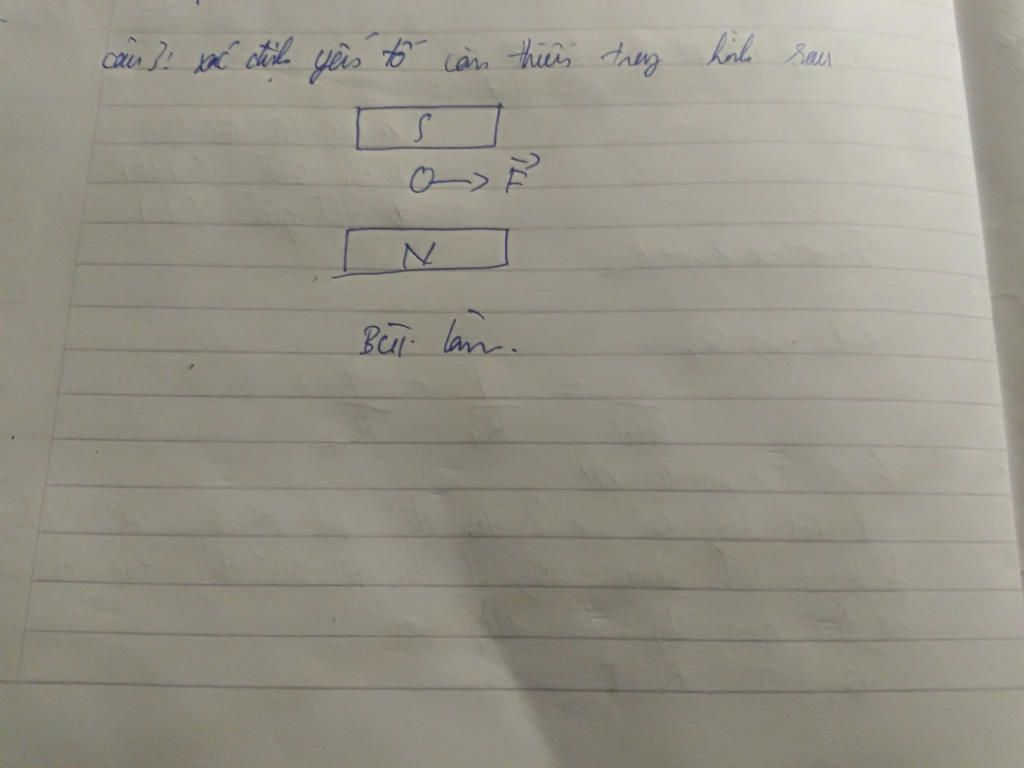 câu 3: xác định yếu tố còn thiếu trong hình sau
S
F
N
Bài làm.